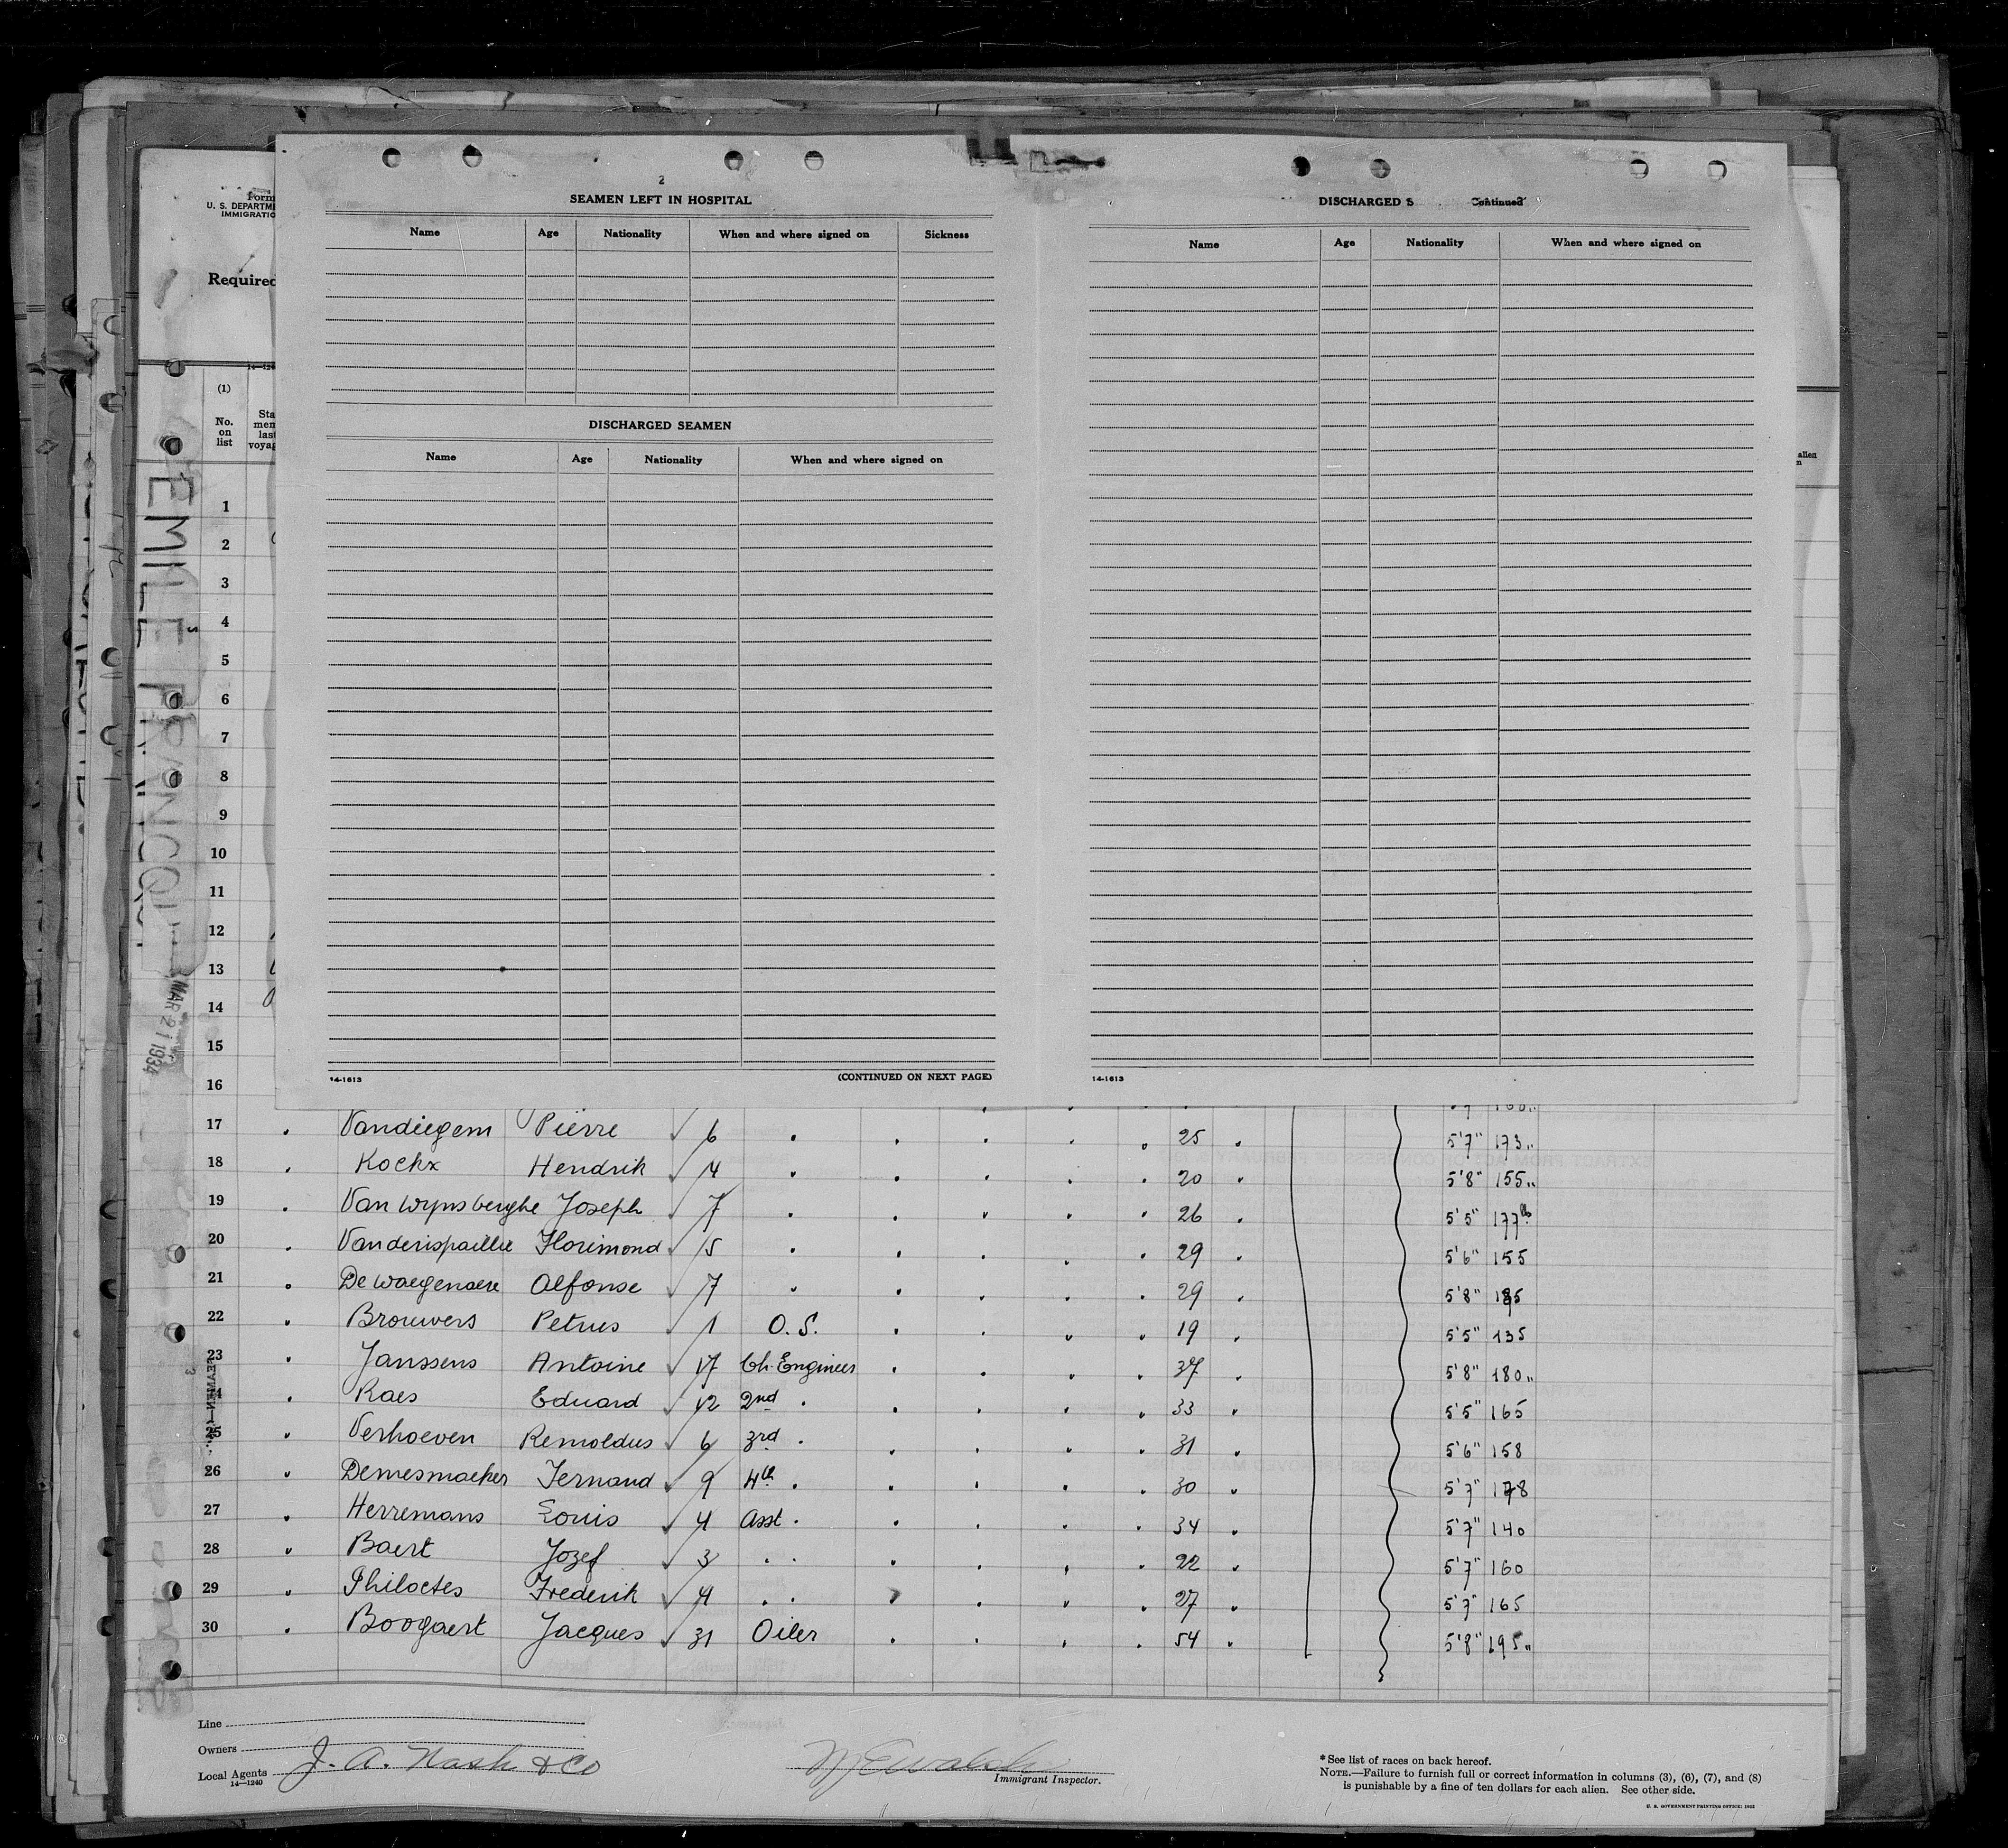 Form
U. S. DEPARTM
IMMIGRATIO
Required
14—124
(1)
No.
on
list
Sta
men
last
voyag
EMILE FRANCQUI
MAR 21 1934
2
SEAMEN LEFT IN HOSPITAL
Name Age Nationality When and where signed on Sickness
DISCHARGED SEAMEN
Name Age Nationality When and where signed on
14-1613 (CONTINUED ON NEXT PAGE)
DISCHARGED S Continued
Name Age Nationality When and where signed on
14-1613
alien
n
1
2
3
4
5
6
7
8
9
10
11
12
13
14
15
16
17 " Vandiegem Pierre ✓ 6 " " " " " 25 " 5'7" 173"
18 " Kockx Hendrik ✓ 4 " " " " " 20 " 5'8" 155"
19 " Van Wynsberghe Joseph ✓ 7 " " " " " 26 " 5'5" 177 lb
20 " Vanderispaillie Florimond ✓ 5 " " " " " 29 " 5'6" 155
21 " De Waegenaere Alfonse ✓ 7 " " " " " 29 " 5'8" 185
22 " Brouwers Petrus ✓ 1 O.S. " " " " 19 " 5'5" 135
23 " Janssens Antoine ✓ 17 Ch. Engineer " " " " 37 " 5'8" 180"
24 " Raes Eduard ✓ 12 2nd " " " " " 33 " 5'5" 165
25 " Verhoeven Remoldus ✓ 6 3rd " " " " " 31 " 5'6" 158
26 " Demesmaeker Fernand ✓ 9 4th " " " " " 30 " 5'7" 178
27 " Herremans Louis ✓ 4 Asst " " " " " 34 " 5'7" 140
28 " Baert Jozef ✓ 3 " " " " " " 22 " 5'7" 160
29 " Philoctes Frederik ✓ 4 " " " " " " 27 " 5'7" 165
30 " Boogaert Jacques ✓ 31 Oiler " " " " 54 " 5'8" 195"
Line
Owners
Local Agents J. A. Nash & Co
14—1240
Immigrant Inspector.
* See list of races on back hereof.
NOTE.—Failure to furnish full or correct information in columns (3), (6), (7), and (8)
is punishable by a fine of ten dollars for each alien. See other side.
U. S. GOVERNMENT PRINTING OFFICE: 1932